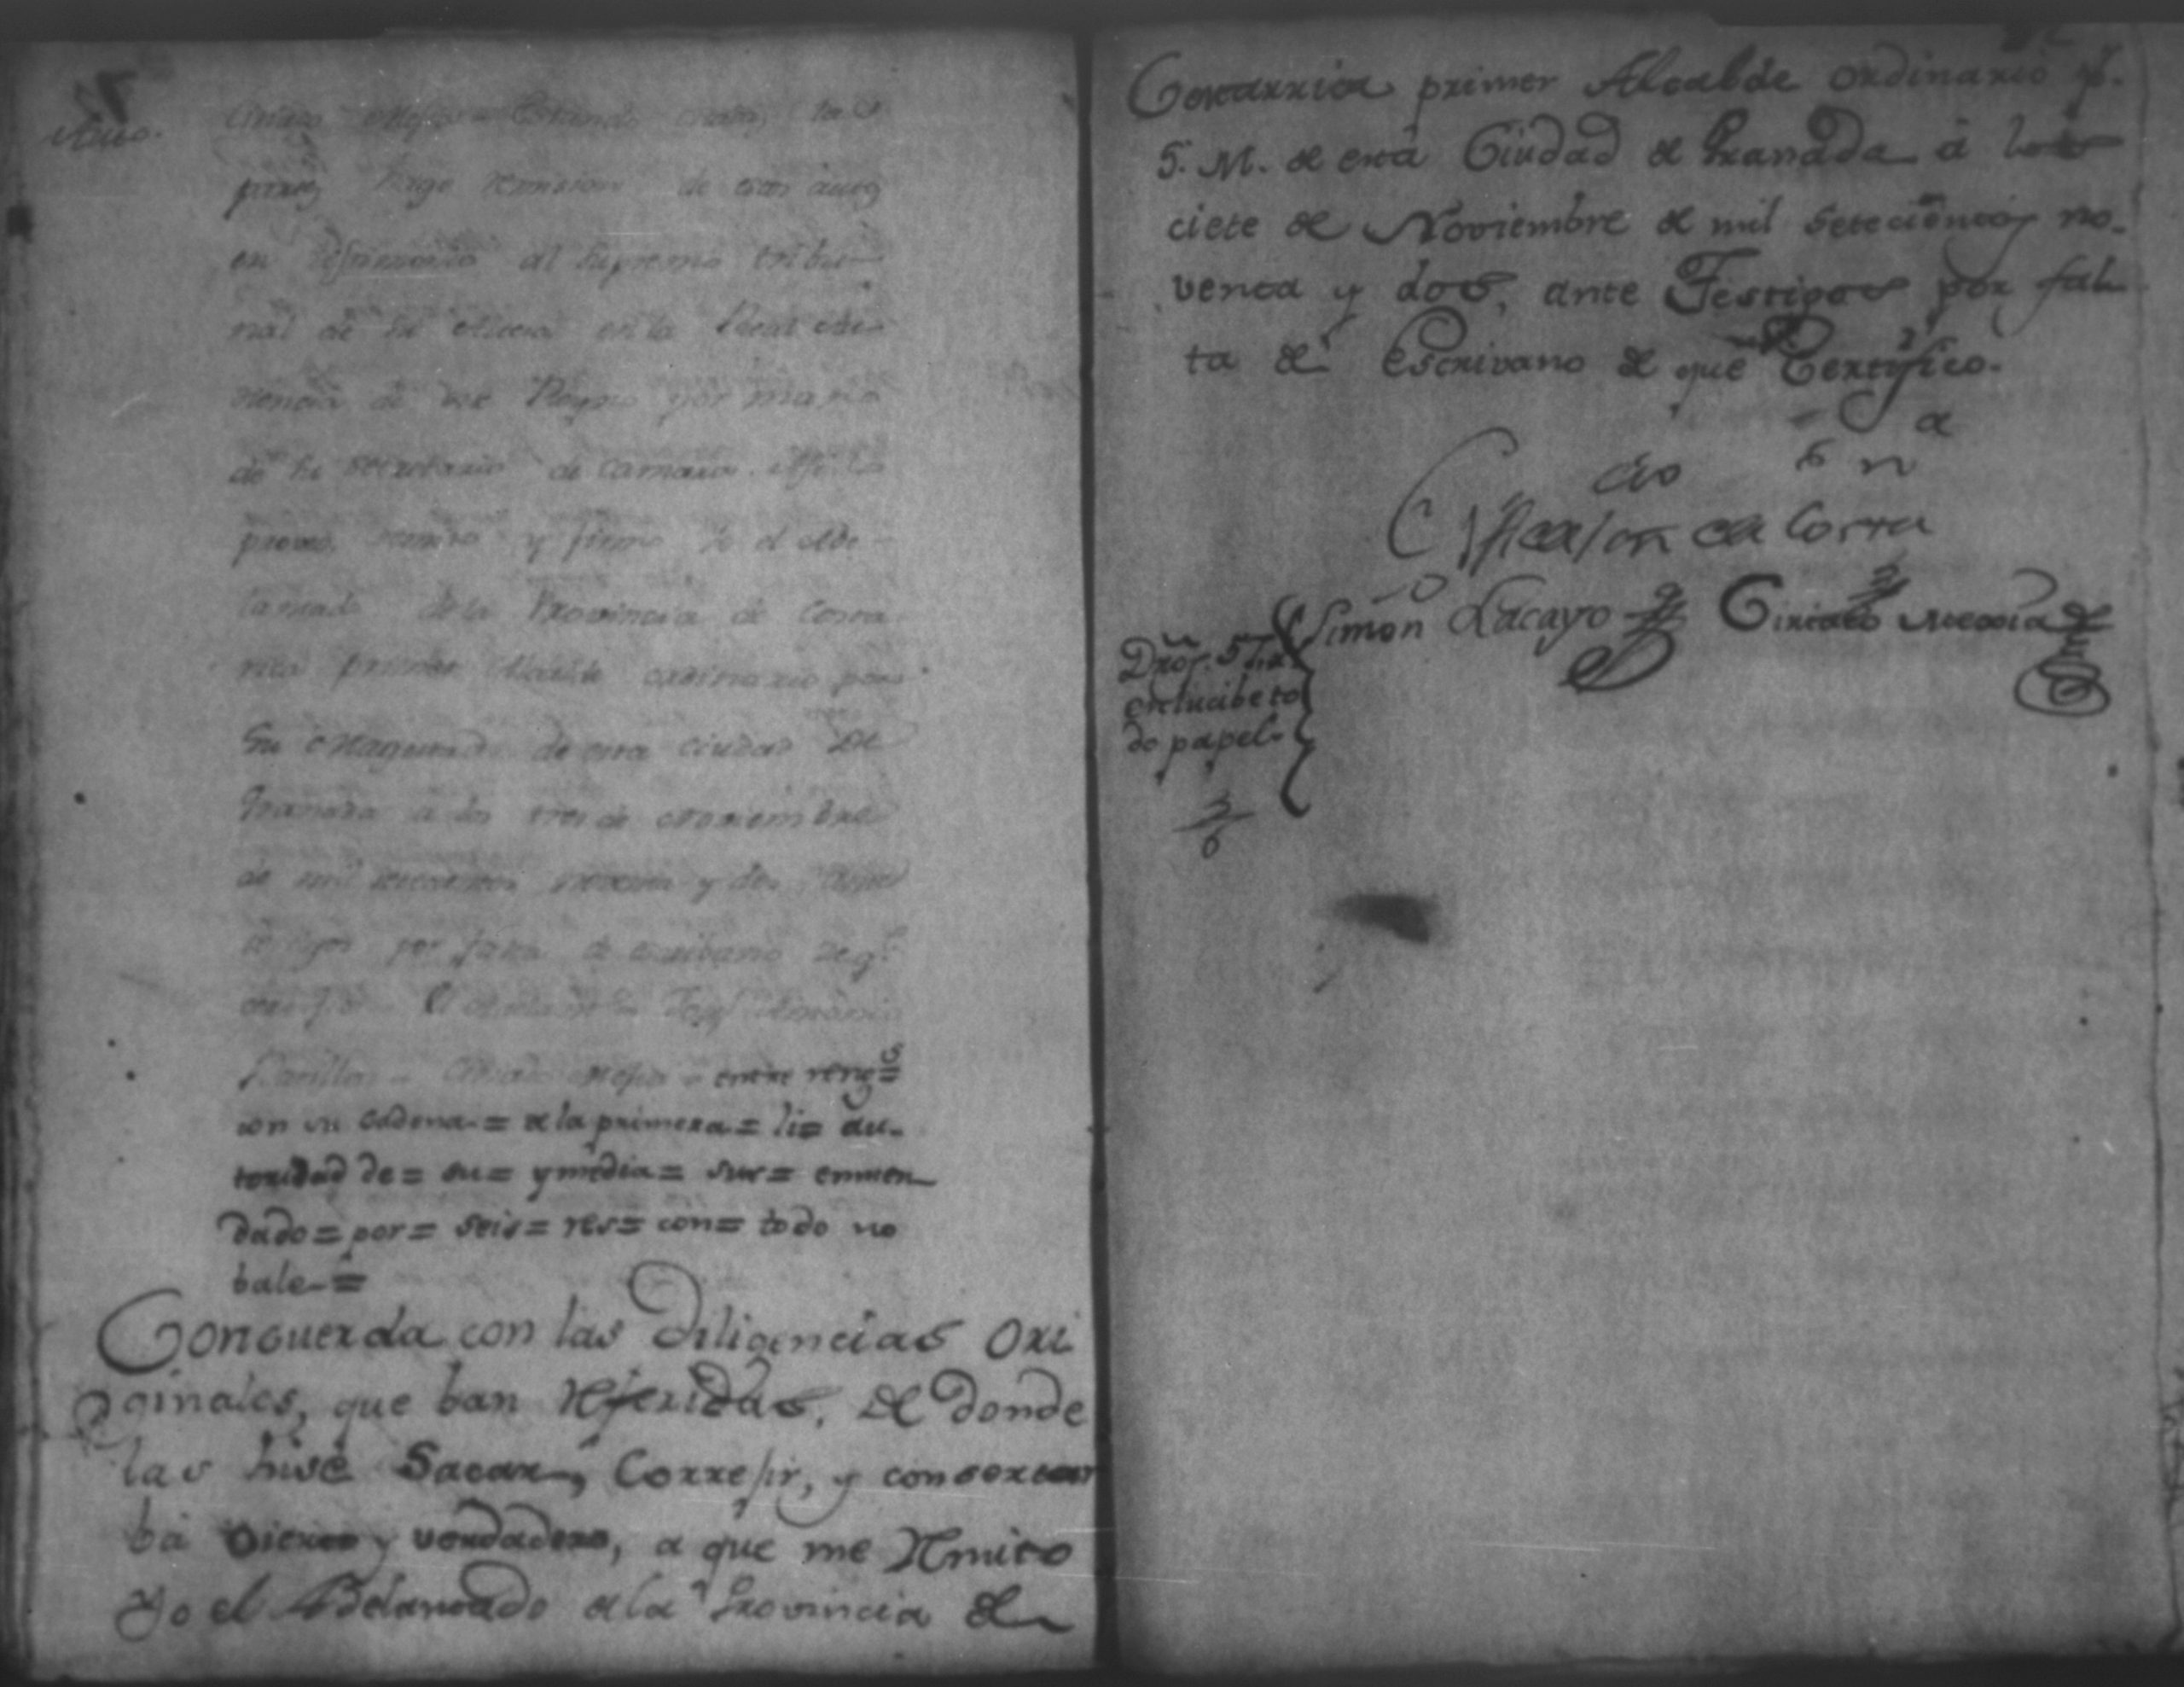 Auto.
pones hago remision de estos autos
en testimonio al supremo tribu-
nal de la en la Real Au-
diencia de este Reyno por mano
de su secretario de camara.
y firmo Yo el Ade-
lantado de la Provincia de Costa
rica primer Alcalde ordinario por
Su Magestad de esta ciudad de
Granada a los tres de Noviembre
de mil setecientos noventa y dos
testigos por falta de escribano de q.e
certifico El Adelantado = Josef Antonio
entre reng.s =
con su cadena = de la primera = li= au-
toridad de = su = y media = sus = enmen-
dado = por = seis = res = con = todo no
bale =
Concuerda con las Diligencias Ori
ginales, que ban Referidas, de donde
las hise Sacar, Correjir, y consertar
ba sierto y verdadero, a que me Remito
Yo el Adelantado de la Provincia de
Costarrica primer Alcalde ordinario p.r
S. M. de esta Ciudad de Granada à los
ciete de Noviembre de mil setecientos no-
venta y dos, ante Testigos por fal
ta de Escrivano de que Certifico.
Costa
Simon Lacayo
Dros. 5
inclucibe to
do papel-